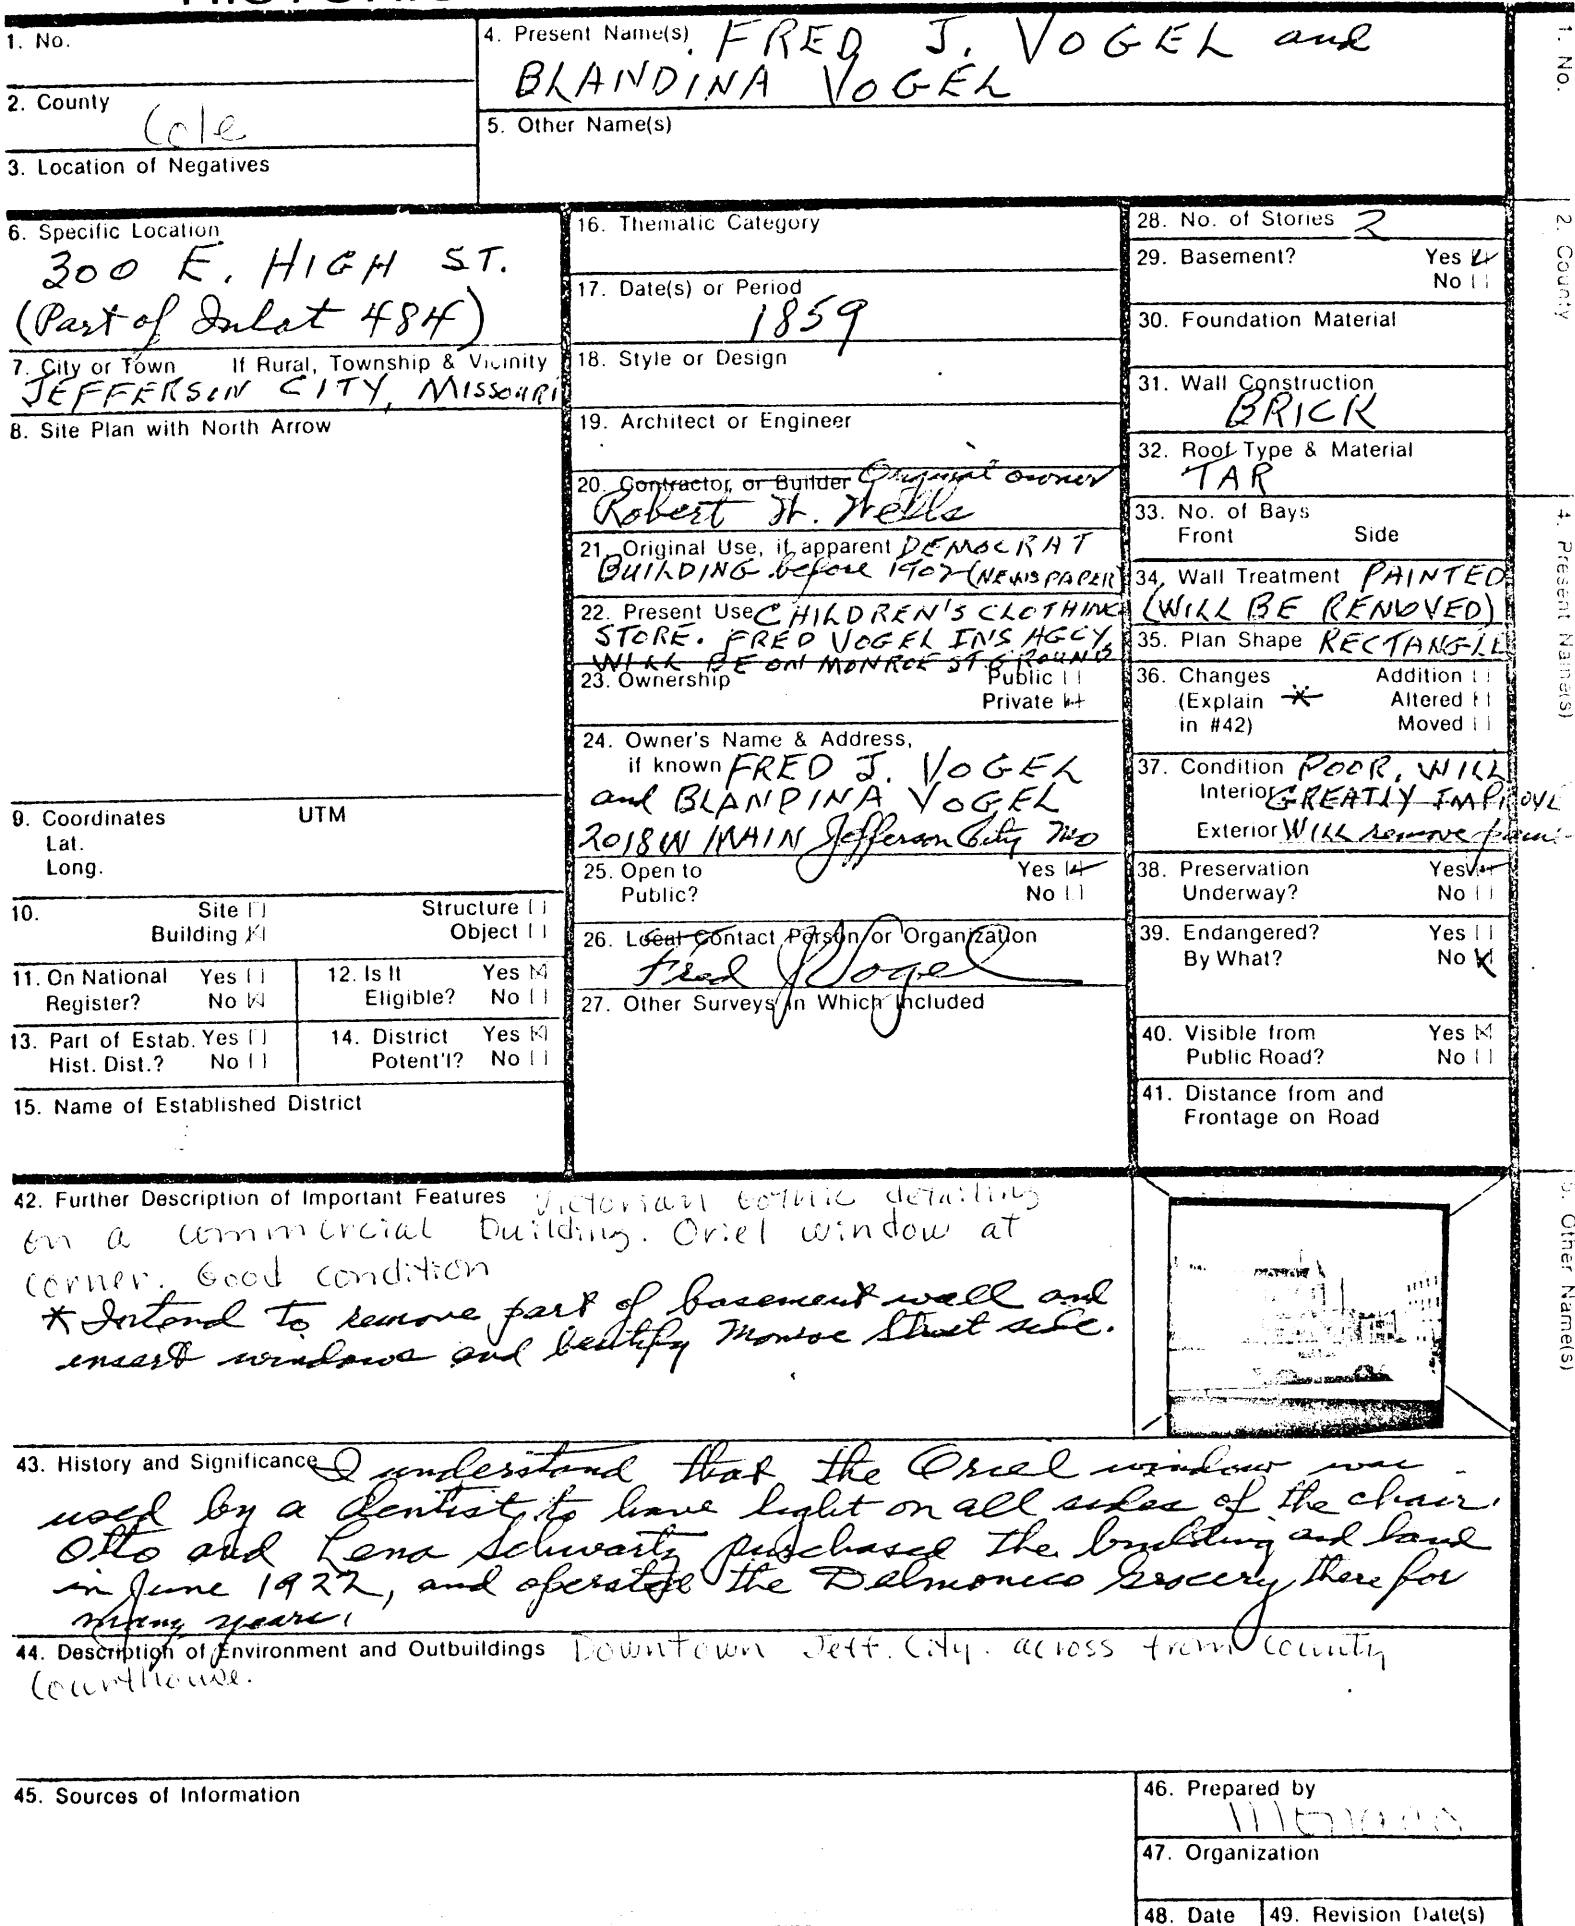 1. No.
4. Present Name(s) FRED J. VOGEL and
BLANDINA VOGEL
2. County
Cole
5. Other Name(s)
3. Location of Negatives
6. Specific Location
300 E. HIGH ST.
(Part of Inlot 484)
7. City or Town If Rural, Township & Vicinity
JEFFERSON CITY, MISSOURI
8. Site Plan with North Arrow
9. Coordinates UTM
Lat.
Long.
10. Site Structure
Building Object
11. On National Yes
Register? No
12. Is It Yes
Eligible? No
13. Part of Estab. Yes
Hist. Dist.? No
14. District Yes
Potent'l? No
15. Name of Established District
16. Thematic Category
17. Date(s) or Period
1859
18. Style or Design
19. Architect or Engineer
20. Contractor or Builder Original owner
Robert W. Wells
21. Original Use, if apparent DEMOCRAT
BUILDING before 1902 (NEWSPAPER)
22. Present Use CHILDREN'S CLOTHING
STORE. FRED VOGEL INS AGCY,
WILL BE ON MONROE ST GROUND
23. Ownership Public
Private
24. Owner's Name & Address,
if known FRED J. VOGEL
and BLANDINA VOGEL
2018 W MAIN Jefferson City Mo
25. Open to Yes
Public? No
26. Local Contact Person or Organization
Fred J Vogel
27. Other Surveys in Which Included
28. No. of Stories 2
29. Basement? Yes
No
30. Foundation Material
31. Wall Construction
BRICK
32. Roof Type & Material
TAR
33. No. of Bays
Front Side
34. Wall Treatment PAINTED
(WILL BE REMOVED)
35. Plan Shape RECTANGLE
36. Changes Addition
(Explain * Altered
in #42) Moved
37. Condition POOR, WILL
Interior GREATLY IMPROVE
Exterior WILL remove
38. Preservation Yes
Underway? No
39. Endangered? Yes
By What? No
40. Visible from Yes
Public Road? No
41. Distance from and
Frontage on Road
42. Further Description of Important Features Victorian Gothic detailing
on a commercial building. Oriel window at
corner. Good condition
* Intend to remove part of basement wall and
insert windows and beutify Monroe Street side.
43. History and Significance I understand that the Oriel window was
used by a dentist, to have light on all sides of the chair.
Otto and Lena Schwartz purchased the building and land
in June 1922, and operated the Delmonico Grocery there for
many years.
44. Description of Environment and Outbuildings Downtown Jeff. City. across from County
Courthouse.
45. Sources of Information
46. Prepared by
47. Organization
48. Date
49. Revision Date(s)
1. No.
2. County
4. Present Name(s)
5. Other Name(s)